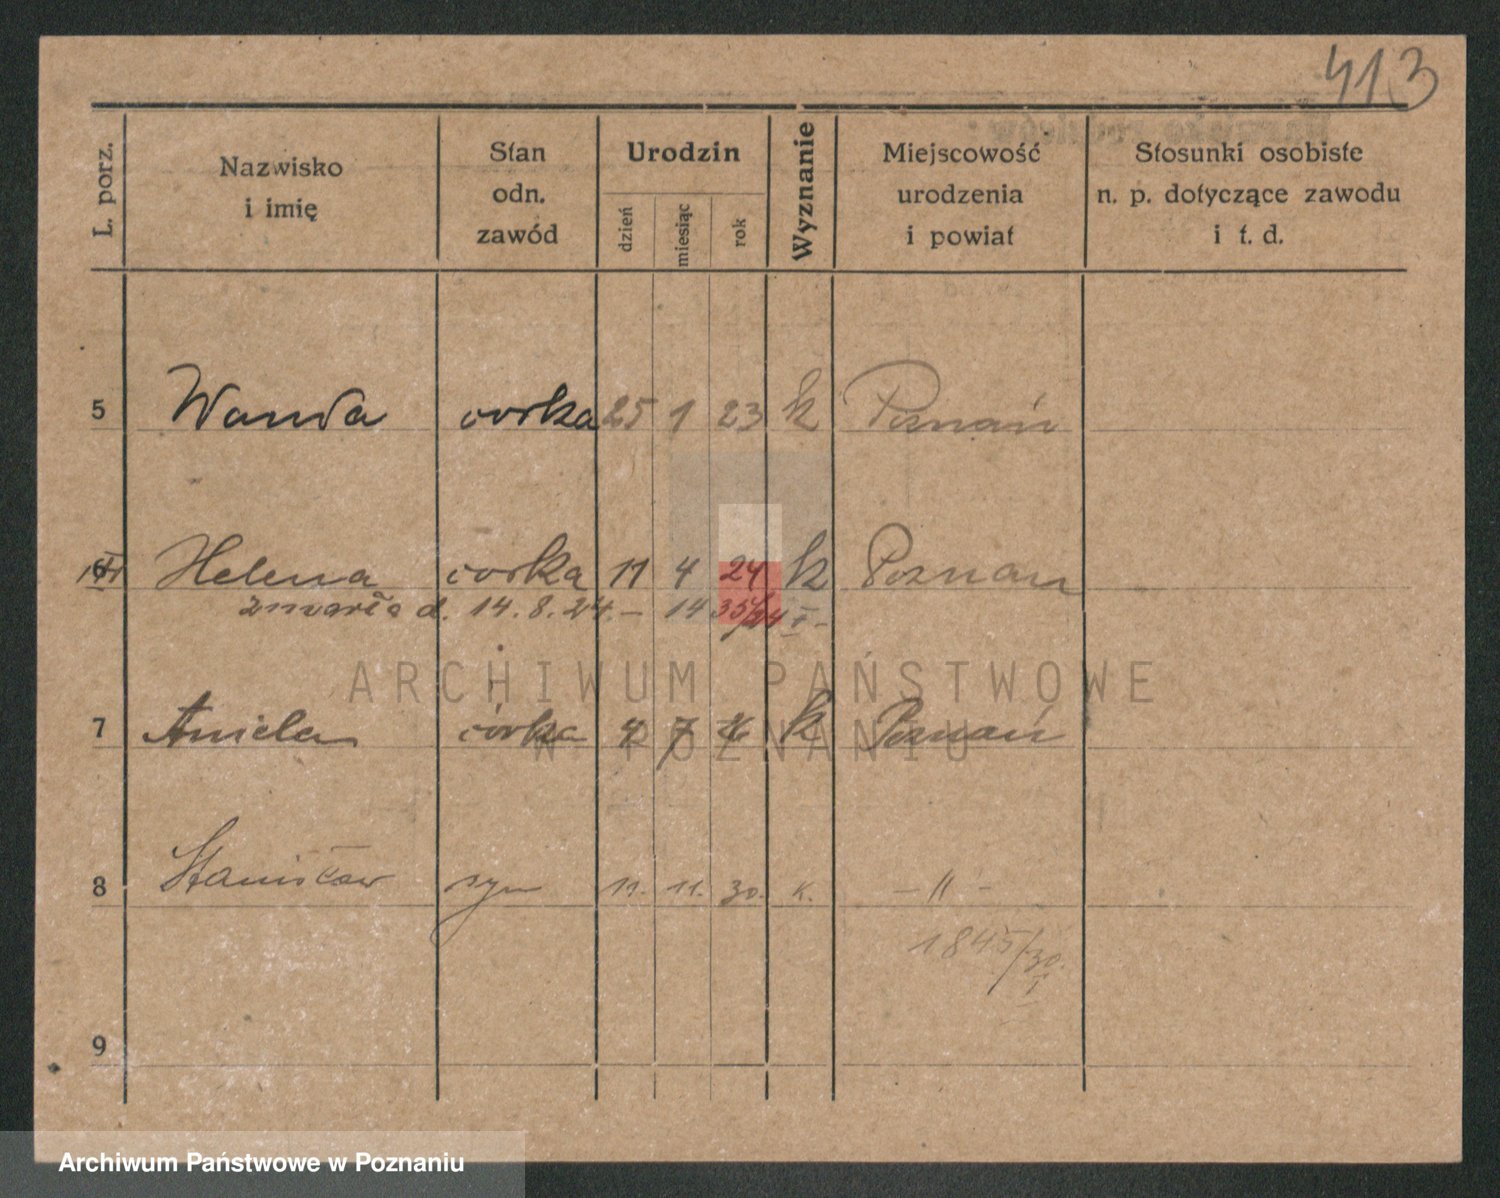 413
L. porz.
Nazwisko
i imię
Stan
odn.
zawód
Urodzin
dzień
miesiąc
rok
Wyznanie
Miejscowość
urodzenia
i powiat
Stosunki osobiste
n. p. dotyczące zawodu
i t. d.
5 Wanda córka 25 1 23 k Poznań
6 Helena córka 11 4 24 k Poznań
zmarła d. 14. 8. 24. – 14
7 Aniela córka 7 k Poznań
8 Stanisław syn 11. 11. 30. k. – " –
1845/30.
I
9
ARCHIWUM PAŃSTWOWE
W POZNANIU
Archiwum Państwowe w Poznaniu